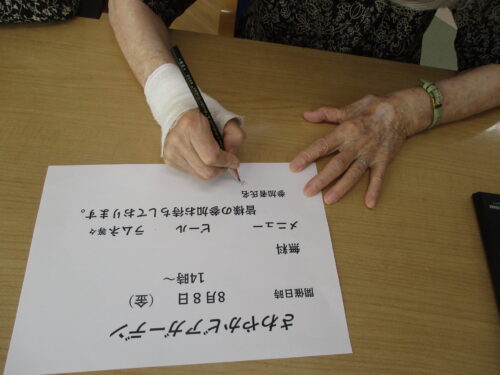 さわやかビアガーデン
開催日時　8月8日（金）
14時～
無料
メニュー　ビール　ラムネ等々
皆様の参加お待ちしております。
参加者氏名